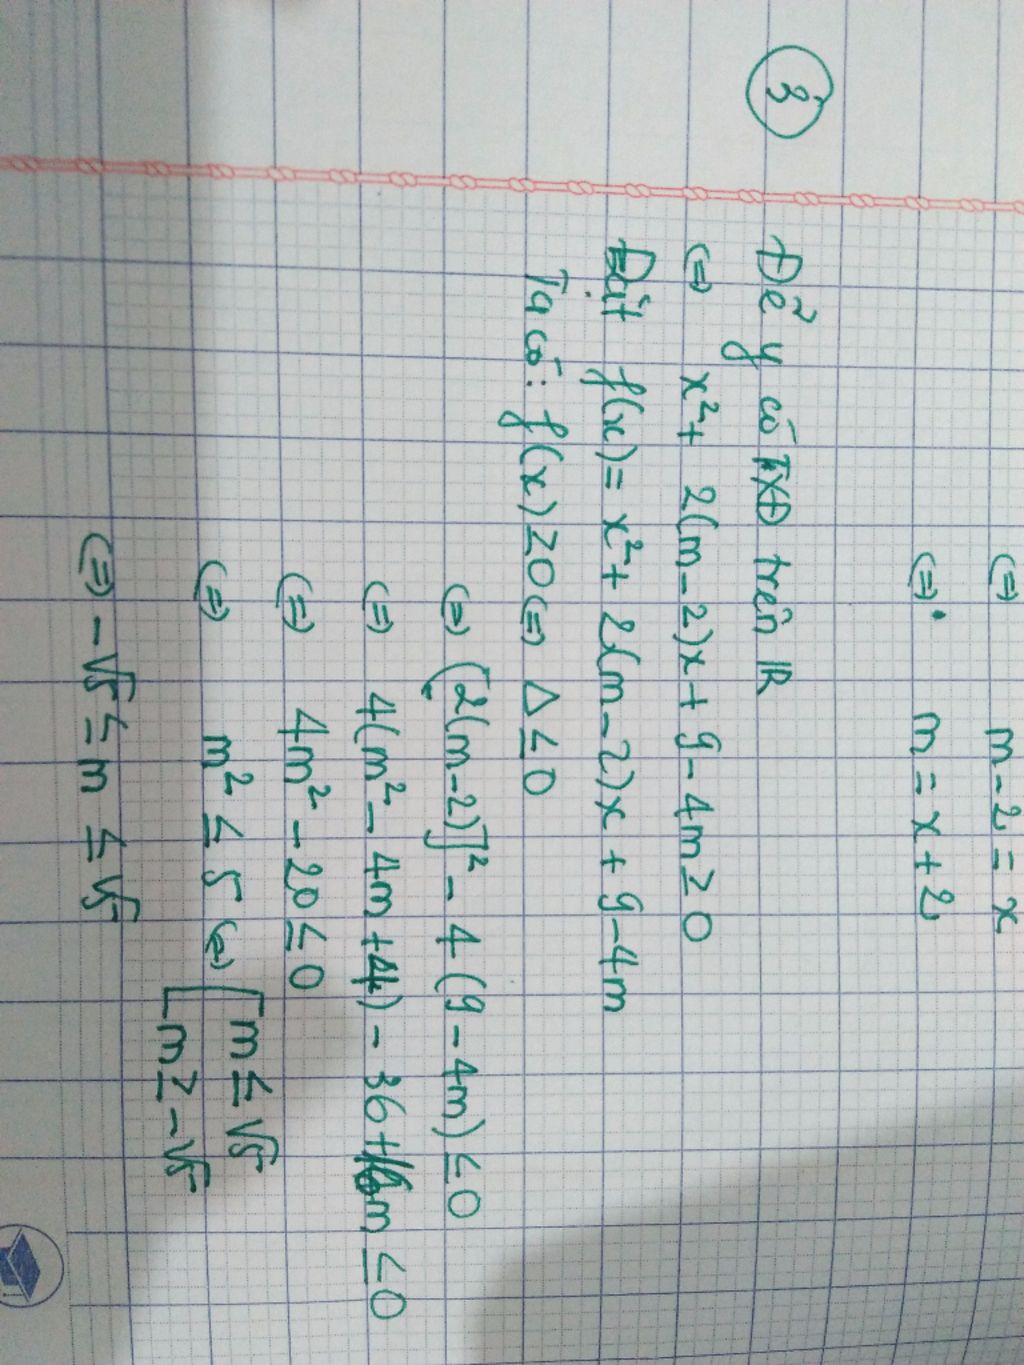 (=) m-2 = x
(=) m = x+2
③
Để y có TXĐ trên ℝ
(=) x²+ 2(m-2)x + 9-4m ≥ 0
Đặt f(x) = x²+ 2(m-2)x + 9-4m
Ta có: f(x) ≥0 (=) Δ ≤ 0
(=) [2(m-2)]² - 4(9-4m) ≤ 0
(=) 4(m² - 4m +4) - 36 +16m ≤ 0
(=) 4m² - 20 ≤ 0
(=) m² ≤ 5 (=) [ m ≤ √5
m ≥ -√5
(=) -√5 ≤ m ≤ √5